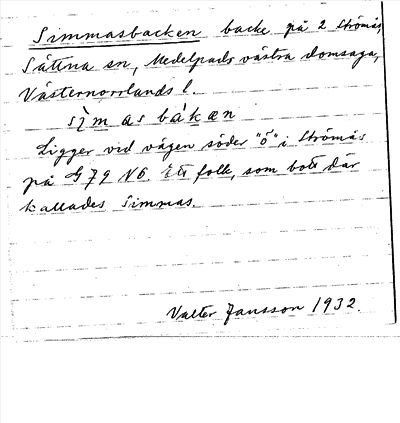 Simmasbacken backe på 2 Strömås,
Sättna sn, Medelpads västra domsaga,
Västernorrlands l.
sìm as bákæn
Ligger vid vägen söder "ö" i Strömås
på G 79 N6. Ett folk, som bott där
kallades Simmas.
Valter Jansson 1932.